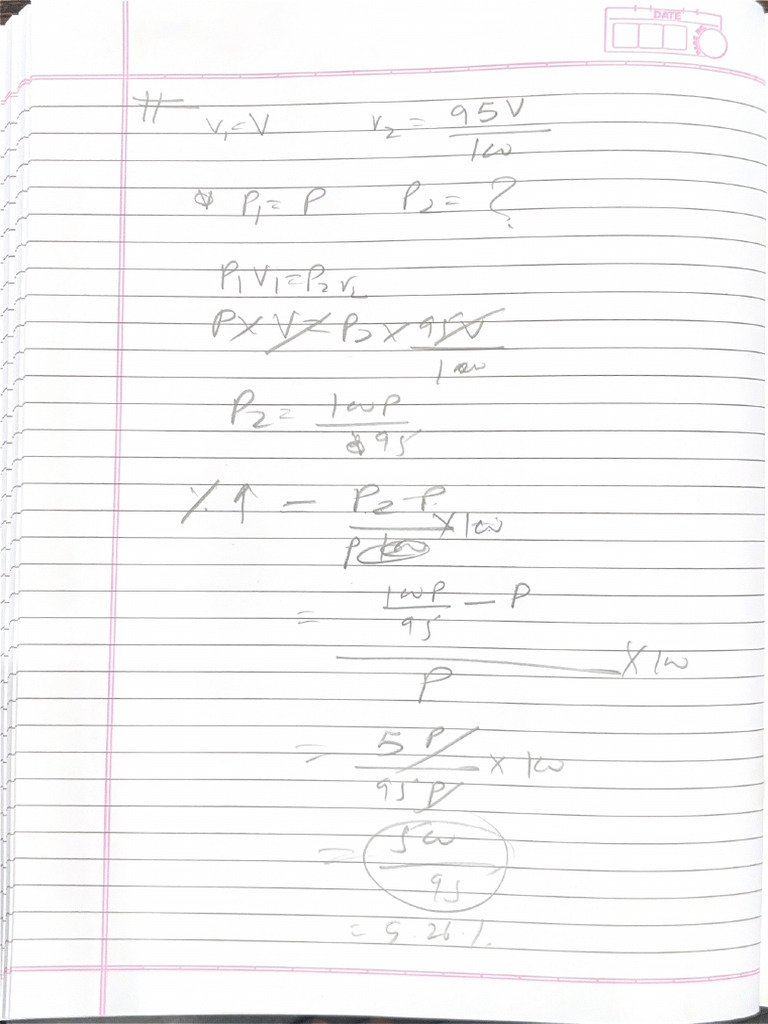 DATE
# V₁=V V₂ = 95V/100
P₁ = P P₂ = ?
P₁V₁=P₂V₂
P×V=P₂×95V/100
P₂ = 100P/95
%↑ = (P₂-P)/P ×100
= (100P/95 - P)/P ×100
= 5P/95P × 100
= 500/95
= 5.26%